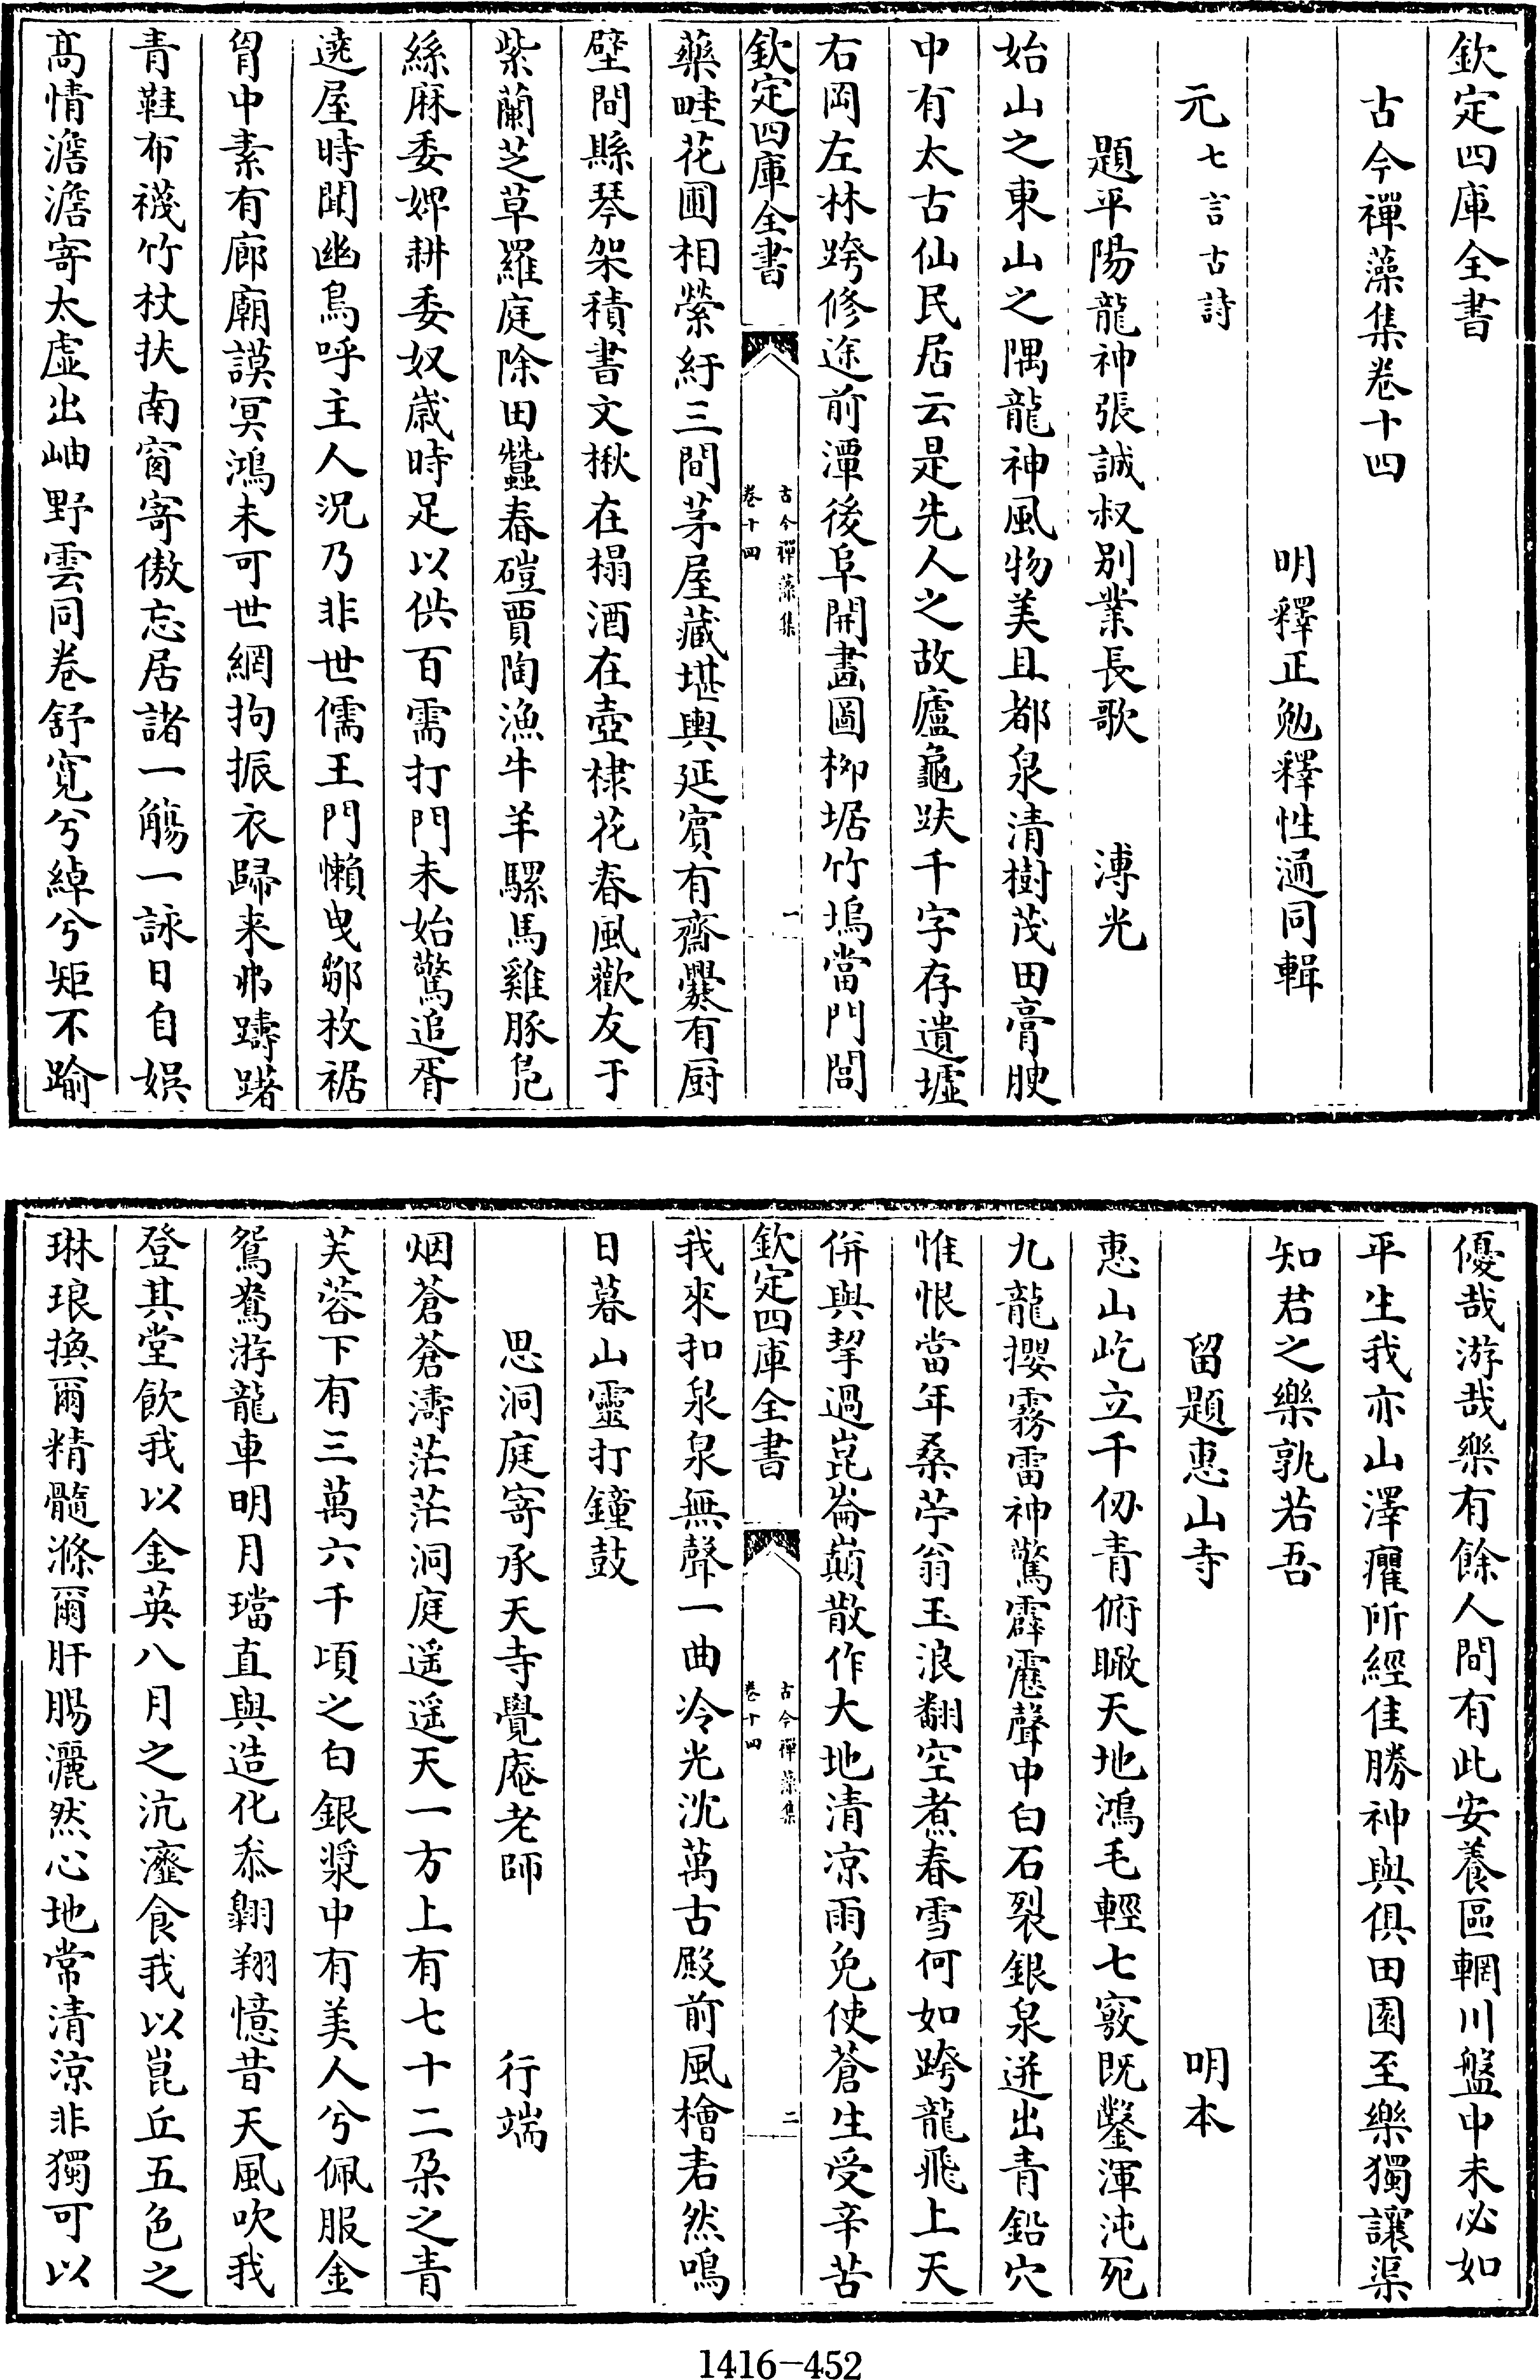 欽定四庫全書
古今禪藻集卷十四
明釋正勉釋性通同輯
元七言古詩
題平陽龍神張誠叔别業長歌　溥光
始山之東山之隅龍神風物美且都泉清樹茂田膏腴
中有太古仙民居云是先人之故廬龜趺千字存遺墟
右岡左林跨修途前潭後阜開畫圖柳堀竹塢當門閭
欽定四庫全書
古今禪藻集
卷十四
一
藥畦花圃相縈紆三間茅屋藏堪輿延賓有齋爨有厨
壁間縣琴架積書文楸在榻酒在壺棣花春風歡友于
紫蘭芝草羅庭除田蠶舂磑賈陶漁牛羊騾馬雞豚鳬
絲麻委婢耕委奴歲時足以供百需打門未始驚追胥
遶屋時聞幽鳥呼主人況乃非世儒王門懶曳鄒枚裾
胷中素有廊廟謨冥鴻未可世網拘振衣歸来弗躊躇
青鞋布襪竹杖扶南窗寄傲忘居諸一觴一詠日自娱
高情澹澹寄太虛出岫野雲同卷舒寛兮綽兮矩不踰
優哉游哉樂有餘人間有此安養區輞川盤中未必如
平生我亦山澤癯所經佳勝神與俱田園至樂獨讓渠
知君之樂孰若吾
留題惠山寺　明本
惠山屹立千仭青俯瞰天地鴻毛輕七竅既鑿渾沌死
九龍攖霧雷神驚霹靂聲中白石裂銀泉迸出青鉛穴
惟恨當年桑苧翁玉浪翻空煮春雪何如跨龍飛上天
併與挈過崑崙巔散作大地清凉雨免使蒼生受辛苦
欽定四庫全書
古今禪藻集
卷十四
二
我來扣泉泉無聲一曲冷光沈萬古殿前風檜砉然鳴
日暮山靈打鐘鼓
思洞庭寄承天寺覺庵老師　行端
烟蒼蒼濤茫茫洞庭遥遥天一方上有七十二朶之青
芙蓉下有三萬六千頃之白銀漿中有美人兮佩服金
鴛鴦游龍車明月璫直與造化忝翺翔憶昔天風吹我
登其堂飲我以金英八月之沆瀣食我以崑丘五色之
琳琅換爾精髓滌爾肝腸灑然心地常清涼非獨可以
1416-452